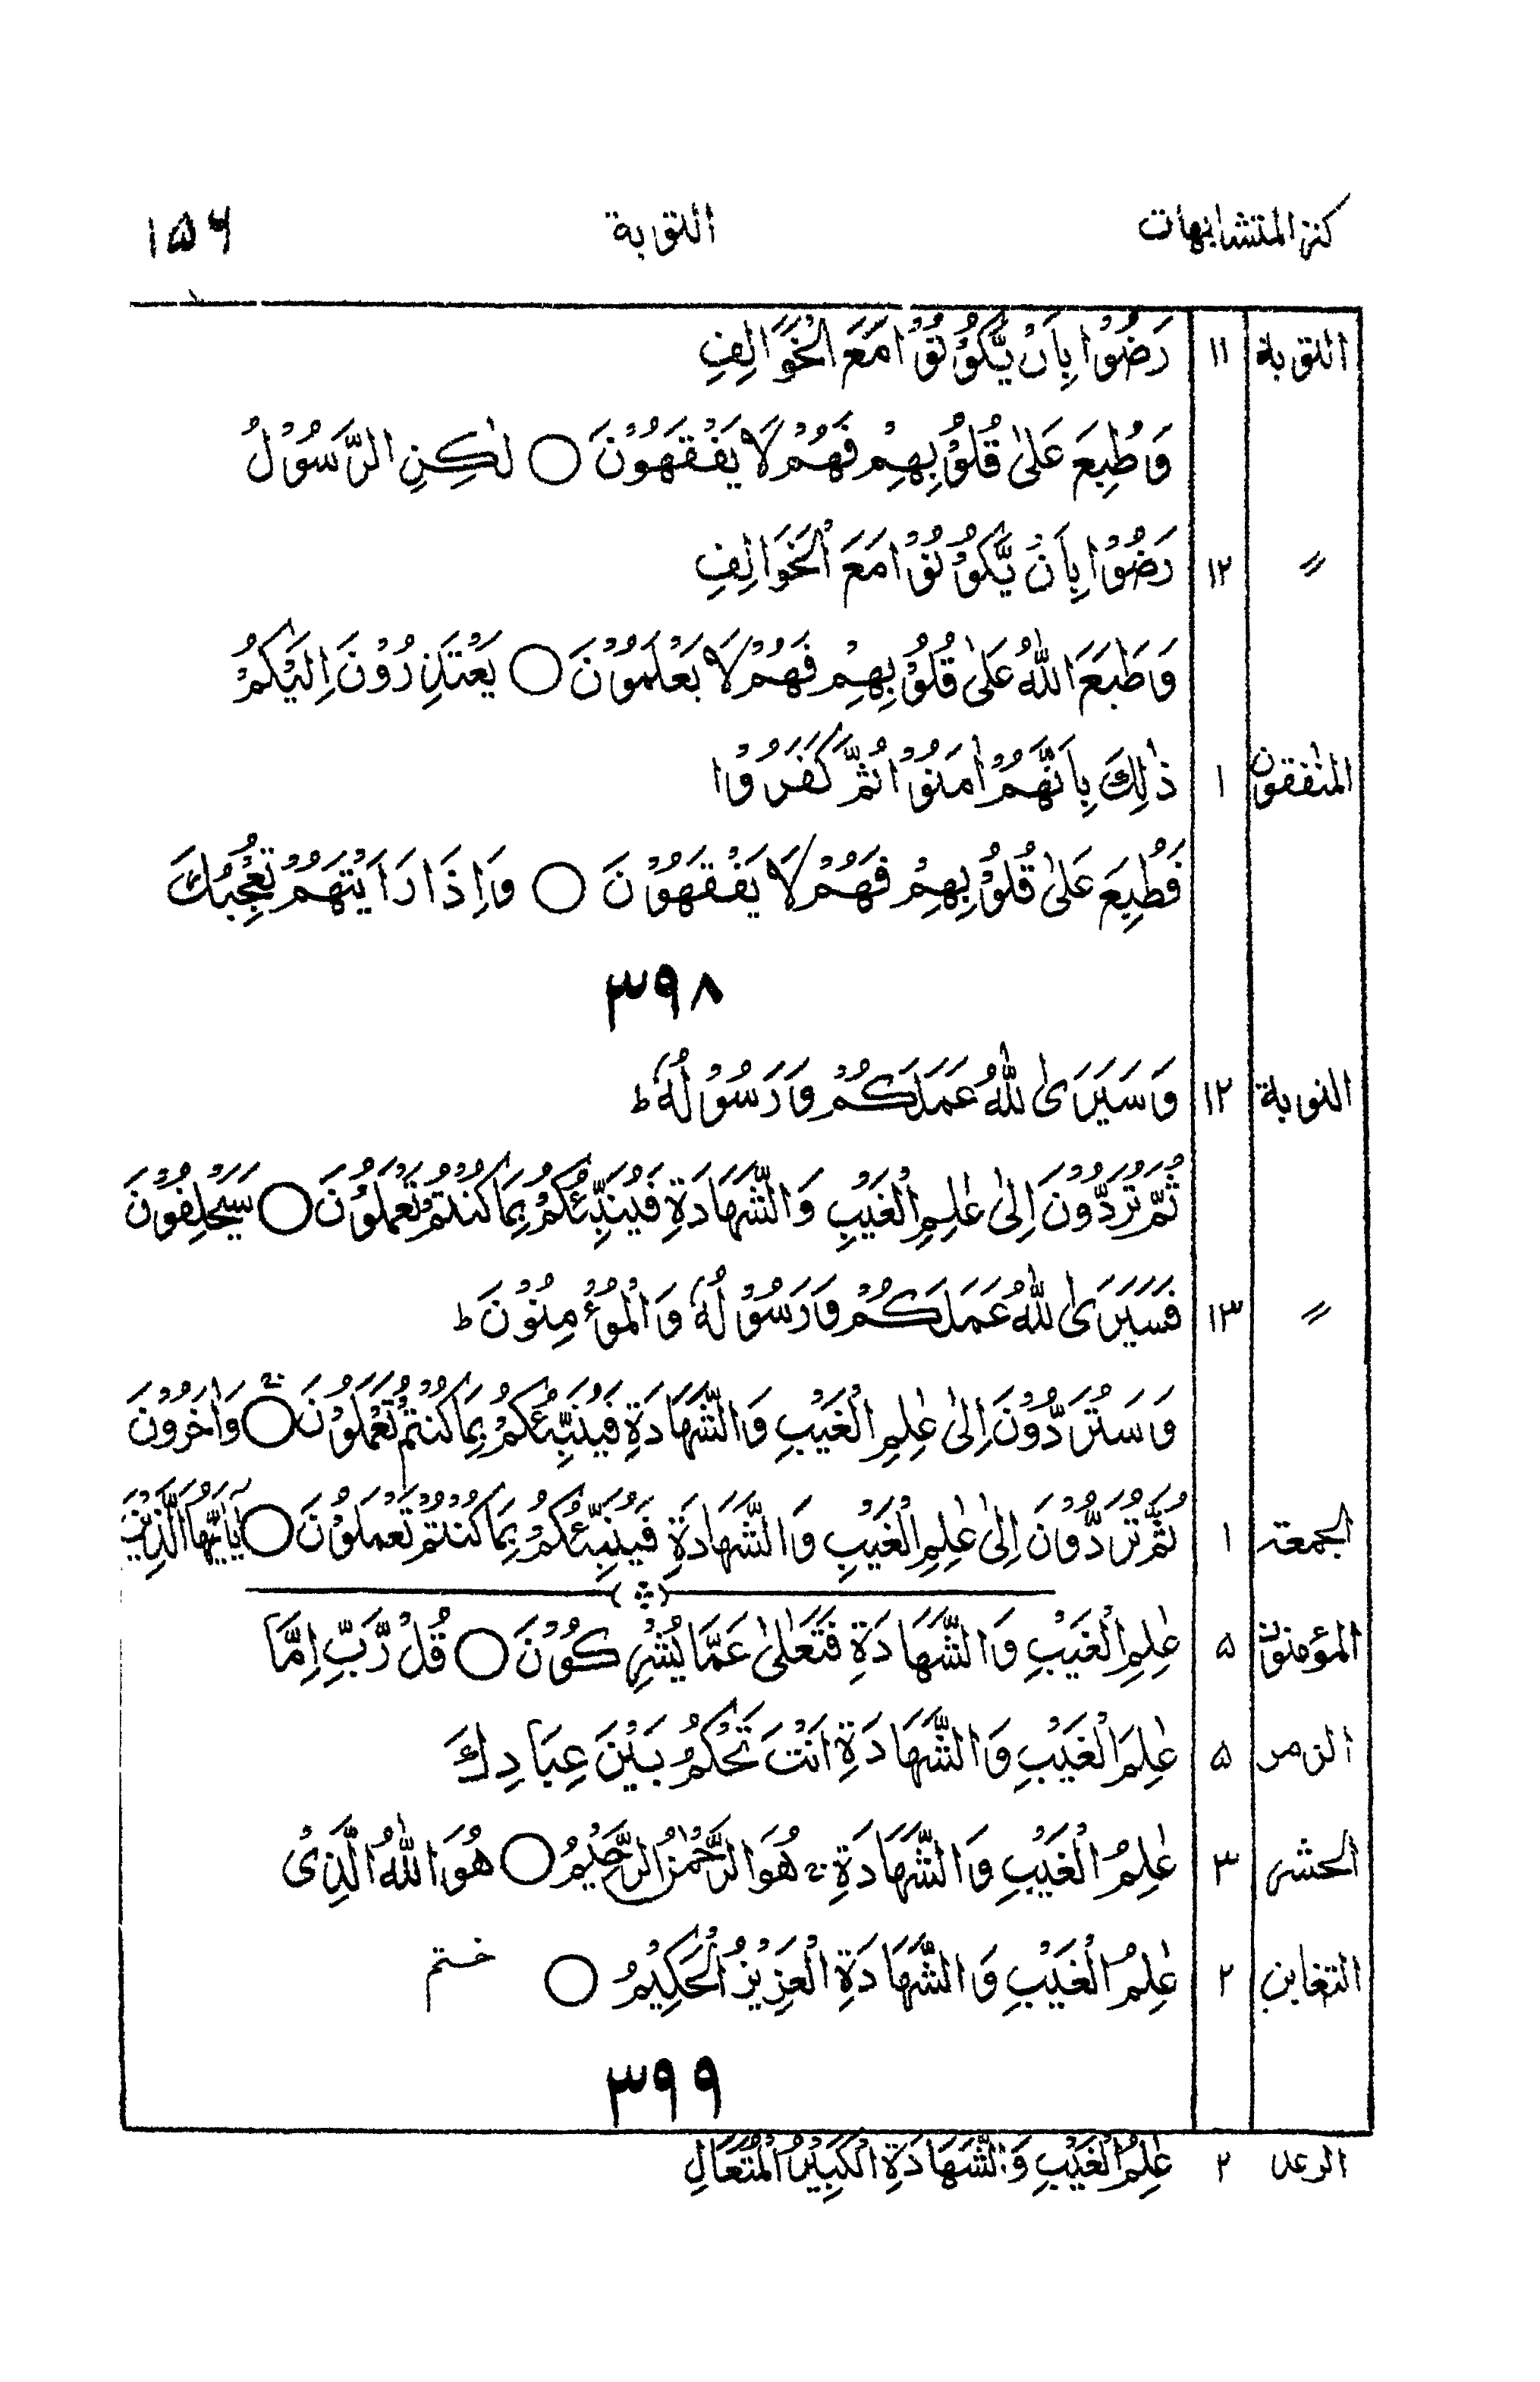 كنز المتشابهات التوبة ۱۵۶
التوبة ۱۱ رَضُوْا بِاَنْ يَّكُوْنُوْا مَعَ الْخَوَالِفِ
وَطُبِعَ عَلٰى قُلُوْبِهِمْ فَهُمْ لَا يَفْقَهُوْنَ ○ لٰكِنِ الرَّسُوْلُ
〃 ۱۲ رَضُوْا بِاَنْ يَّكُوْنُوْا مَعَ الْخَوَالِفِ
وَطَبَعَ اللّٰهُ عَلٰى قُلُوْبِهِمْ فَهُمْ لَا يَعْلَمُوْنَ ○ يَعْتَذِرُوْنَ اِلَيْكُمْ
المنٰفقون ۱ ذٰلِكَ بِاَنَّهُمْ اٰمَنُوْا ثُمَّ كَفَرُوْا
فَطُبِعَ عَلٰى قُلُوْبِهِمْ فَهُمْ لَا يَفْقَهُوْنَ ○ وَاِذَا رَاَيْتَهُمْ تُعْجِبُكَ
۳۹۸
التوبة ۱۲ وَسَيَرَى اللّٰهُ عَمَلَكُمْ وَرَسُوْلُهٗ ط
ثُمَّ تُرَدُّوْنَ اِلٰى عٰلِمِ الْغَيْبِ وَالشَّهَادَةِ فَيُنَبِّئُكُمْ بِمَا كُنْتُمْ تَعْمَلُوْنَ ○ سَيَحْلِفُوْنَ
〃 ۱۳ فَسَيَرَى اللّٰهُ عَمَلَكُمْ وَرَسُوْلُهٗ وَالْمُؤْمِنُوْنَ ط
وَسَتُرَدُّوْنَ اِلٰى عٰلِمِ الْغَيْبِ وَالشَّهَادَةِ فَيُنَبِّئُكُمْ بِمَا كُنْتُمْ تَعْمَلُوْنَ ○ وَاٰخَرُوْنَ
الجمعة ۱ ثُمَّ تُرَدُّوْنَ اِلٰى عٰلِمِ الْغَيْبِ وَالشَّهَادَةِ فَيُنَبِّئُكُمْ بِمَا كُنْتُمْ تَعْمَلُوْنَ ○ يٰٓاَيُّهَا الَّذِيْنَ
المؤمنون ۵ عٰلِمِ الْغَيْبِ وَالشَّهَادَةِ فَتَعٰلٰى عَمَّا يُشْرِكُوْنَ ○ قُلْ رَّبِّ اِمَّا
الزمر ۵ عٰلِمَ الْغَيْبِ وَالشَّهَادَةِ اَنْتَ تَحْكُمُ بَيْنَ عِبَادِكَ
الحشر ۳ عٰلِمُ الْغَيْبِ وَالشَّهَادَةِ ۚ هُوَ الرَّحْمٰنُ الرَّحِيْمُ ○ هُوَ اللّٰهُ الَّذِىْ
التغابن ۲ عٰلِمُ الْغَيْبِ وَالشَّهَادَةِ الْعَزِيْزُ الْحَكِيْمُ ○ ختم
۳۹۹
الرعد ۲ عٰلِمُ الْغَيْبِ وَالشَّهَادَةِ الْكَبِيْرُ الْمُتَعَالِ